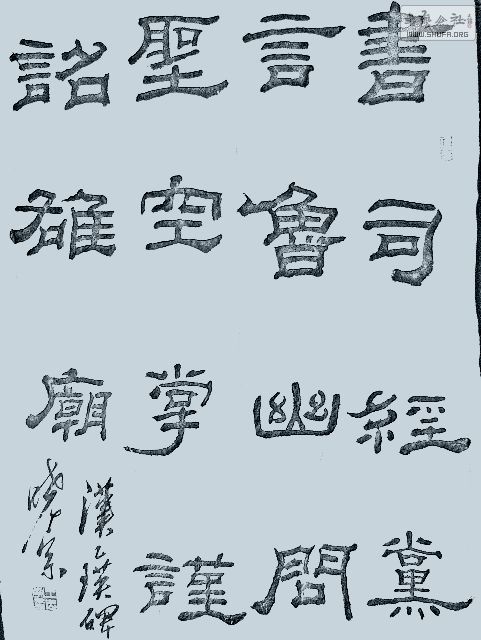 書司經黨
言魯幽問
聖空掌謹
詔雄廟
漢乙瑛碑
公社
WWW.SHUFA.ORG